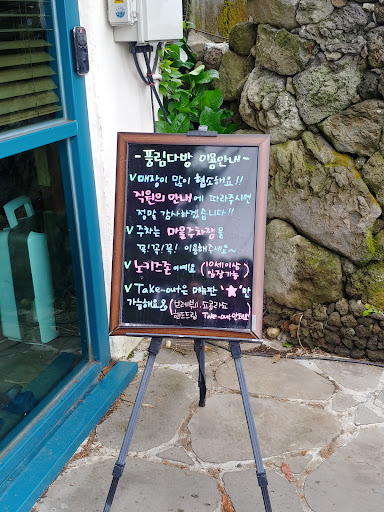 - 풍림다방 이용안내 -
✓매장이 많이 협소해요!!
직원의 안내에 따라주시면
정말 감사하겠습니다!!
✓주차는 마을주차장을
꼭!꼭!꼭! 이용해주세요~
✓노키즈존이에요 (10세이상 입장가능)
✓Take-out은 메뉴판 "★"만
가능해요 (브레붸, 쇼콜라쇼
핸드드립 Take-out 안돼요!)